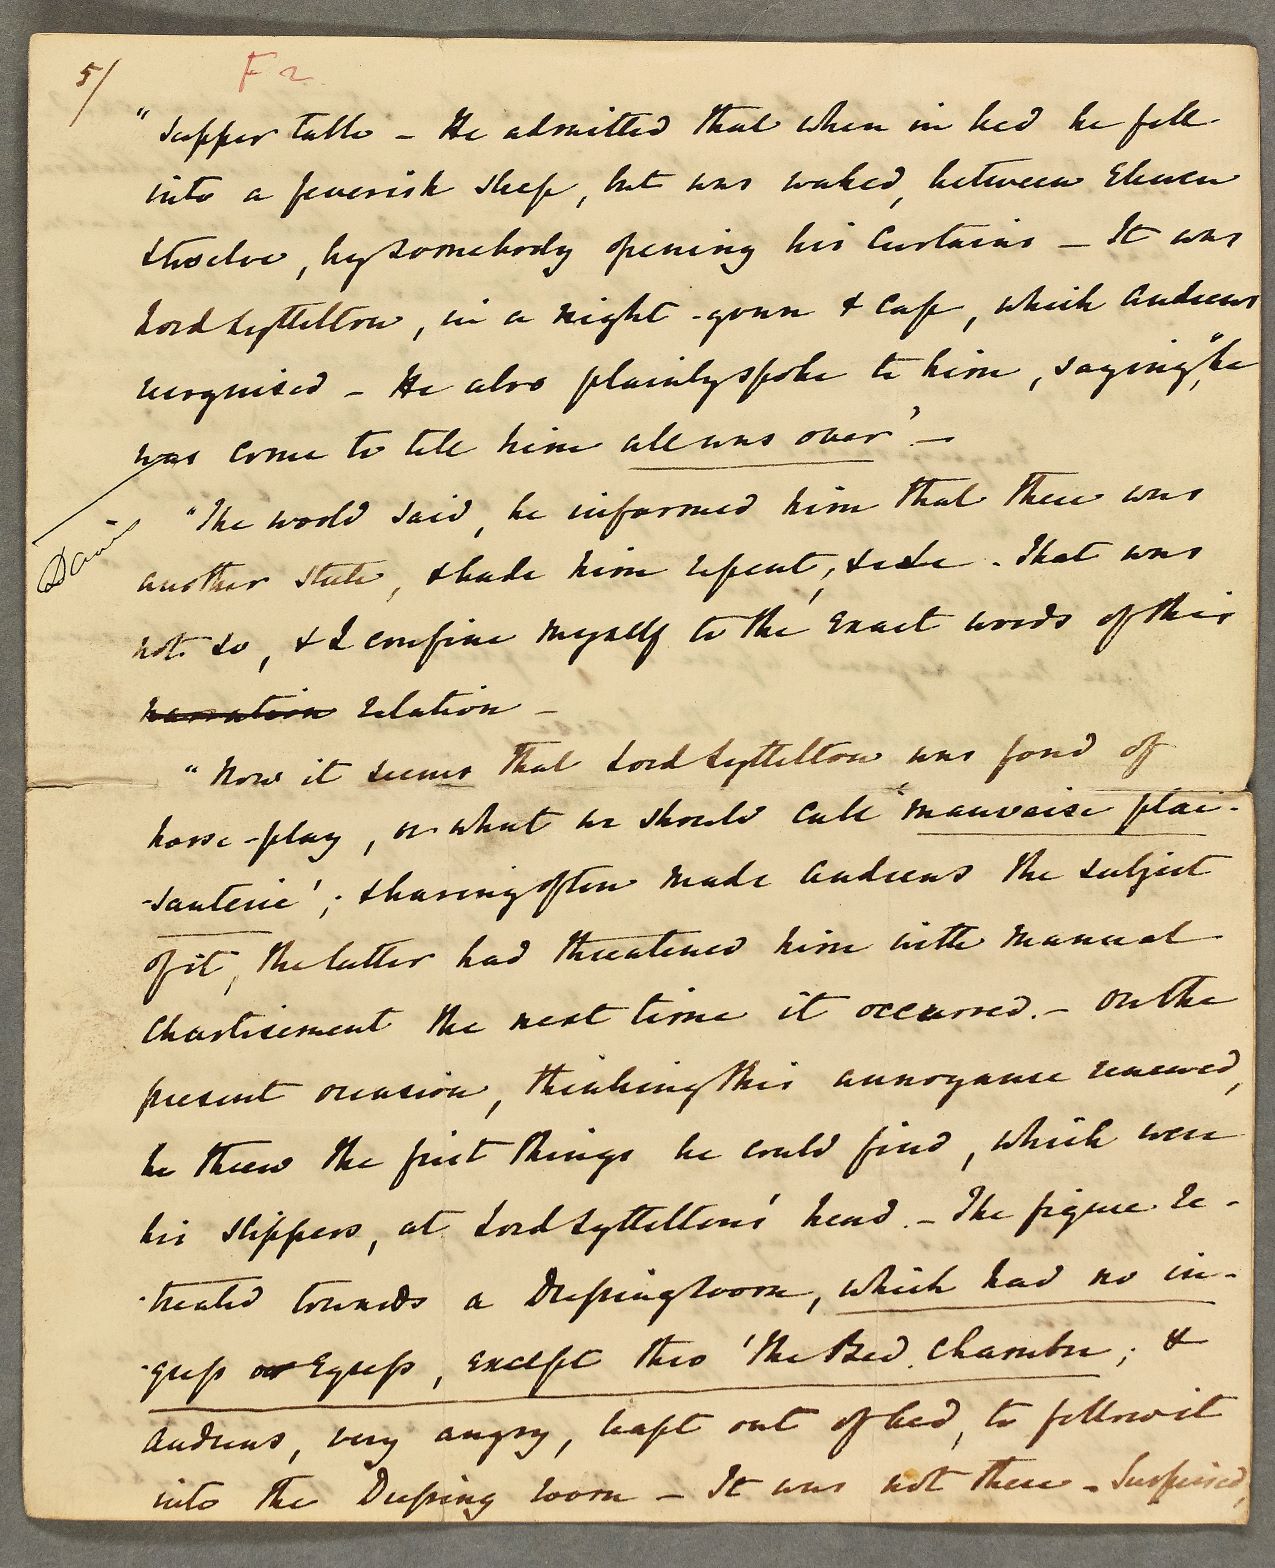 5/
F 2
"supper table – He admitted that when in bed he fell
into a feverish sleep, but was waked, between Eleven
& twelve, by somebody opening his Curtains – It was
Lord Lyttelton, in a night-gown & cap, which Andrews
recognised – He also plainly spoke to him, saying, "he
was come to tell him all was over' –
"The world said, he informed him that there was
another state, & bade him repent, &c &c. That was
not so, & I confine myself to the exact words of this
narration relation –
"Now it seems that Lord Lyttelton was fond of
horse-play, or what we should call 'mauvaise plai-
-santerie'; & having often made Andrews the subject
of it, the latter had threatened him with manual
Chastisement the next time it occurred. – On the
present occasion, thinking this annoyance renewed,
he threw the first things he could find, which were
his slippers, at Lord Lyttelton's head. – The figure re-
-treated towards a Dressing room, which had no in-
-gress or Egress, except thro' the Bed Chamber; &
Andrews, very angry, leapt out of bed, to follow it
into the Dressing room – It was not there – Surprised,